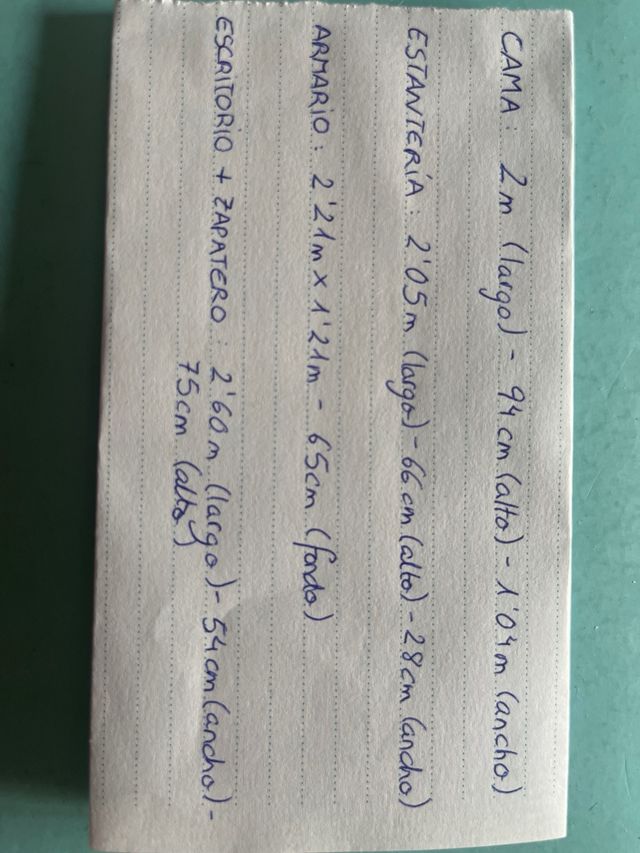 CAMA: 2m (largo) - 94cm (alto) - 1'04m (ancho)
ESTANTERÍA: 2'05m (largo) - 66cm (alto) - 28cm (ancho)
ARMARIO: 2'21m x 1'21m - 65cm (fondo)
ESCRITORIO + ZAPATERO: 2'60m (largo) - 54cm (ancho) -
75cm (alto)